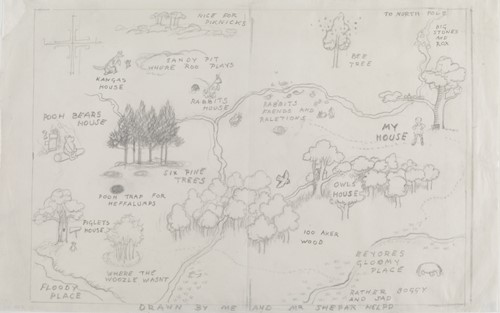 NICE FOR
PIKNICKS
TO NORTH POLE
BIG
STONES
AND
ROX
BEE
TREE
SANDY PIT
WHERE ROO PLAYS
KANGAS
HOUSE
RABBITS
HOUSE
RABBITS
FRENDS AND
RALETIONS
POOH BEARS
HOUSE
MY
HOUSE
SIX PINE
TREES
POOH TRAP FOR
HEFFALUMPS
OWLS
HOUSE
PIGLETS
HOUSE
100 AKER
WOOD
EEYORES
GLOOMY
PLACE
WHERE THE
WOOZLE WASNT
FLOODY
PLACE
RATHER BOGGY
AND SAD
DRAWN BY ME AND MR SHEPARD HELPD